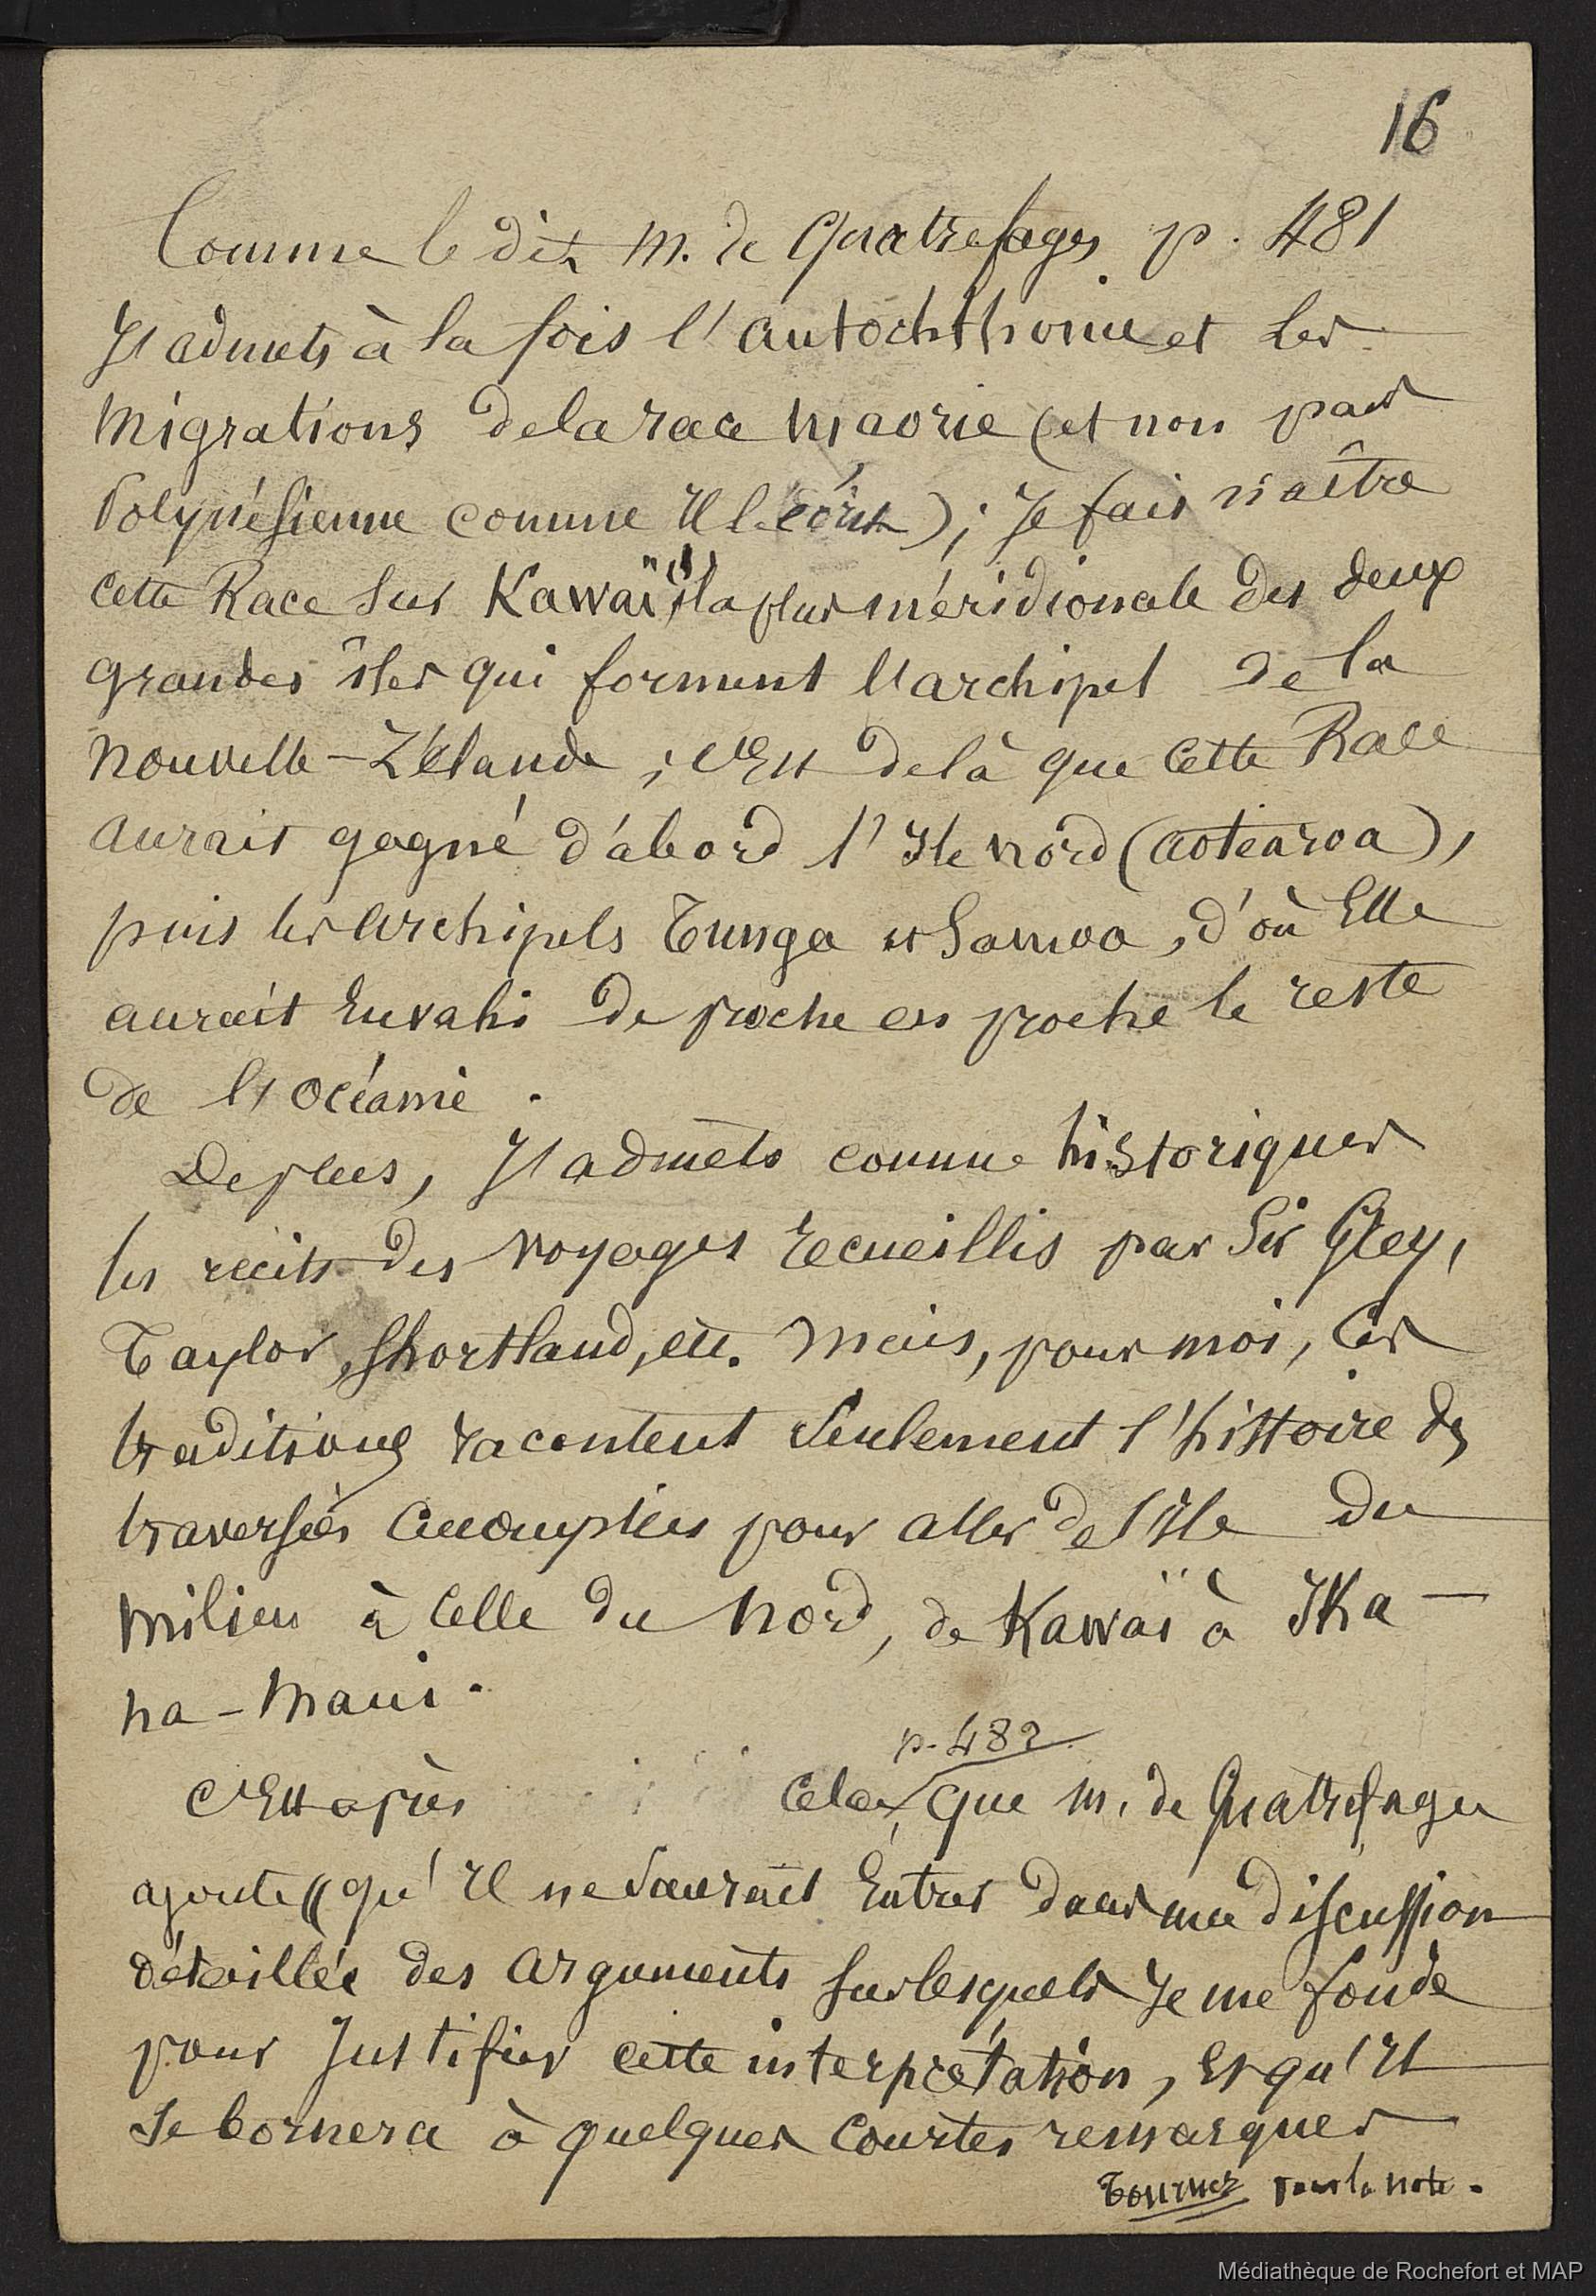 16
Comme le dit M. de Quatrefages p. 481
J'admets à la fois l'autochthonie et les
migrations de la race Maorie (et non pas
Polynésienne comme Il l'écrit); Je fais naître
cette Race sur Kawaï, la plus méridionale des deux
grandes îles qui forment l'archipel de la
Nouvelle-Zélande; C'Est de là que cette Race
aurait gagné d'abord l'Ile nord (aotearoa),
puis les archipels Tunga et Samoa, d'où Elle
aurait Envahi de proche en proche le reste
de l'océanie.
De plus, J'admets comme historiques
les récits des voyages recueillis par Sir Grey,
Taylor, Shortland, etc. Mais, pour moi, Ces
traditions racontent seulement l'histoire des
traversées accomplies pour aller de l'Ile du
milieu à Celle du Nord, de Kawaï à Ika-
na-Maui.
p. 482
C'Est après Cela, que M. de Quatrefages
ajoute « qu'Il ne saurait Entrer dans une discussion
détaillée des arguments sur lesquels Je me fonde
pour Justifier cette interprétation, Et qu'Il
se bornera à quelques Courtes remarques
Tournez pour la note.
Médiathèque de Rochefort et MAP